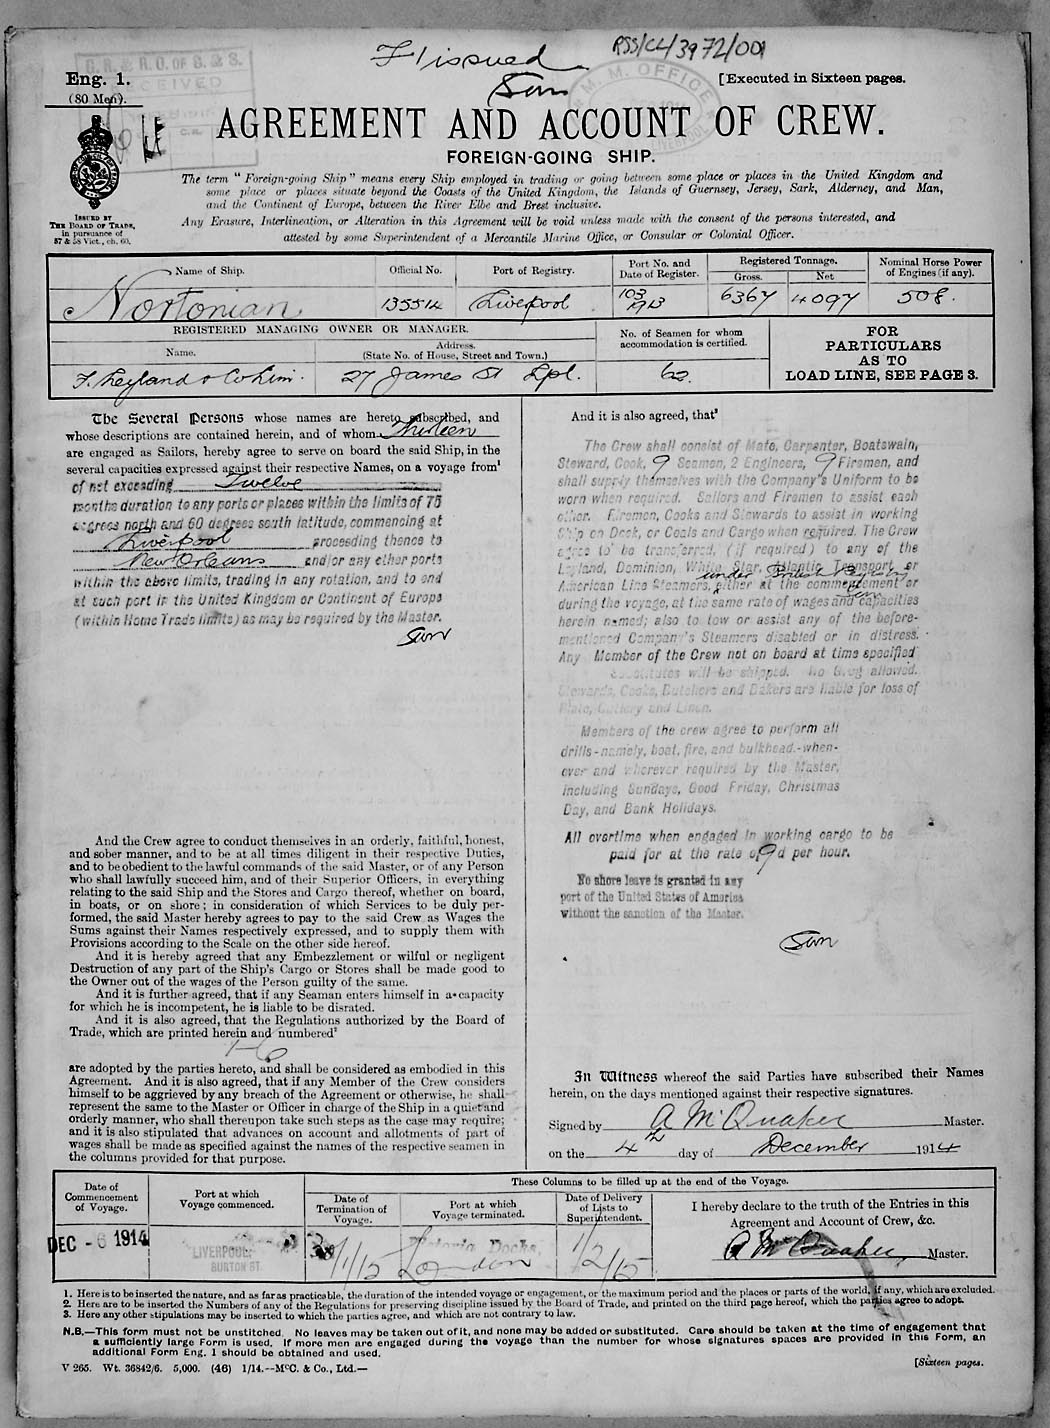 F issued
RSS/CL/3972/001
G. R. & R. O. OF S. & S.
RECEIVED
M. M. OFFICE
LIVERPOOL
Eng. 1.
(80 Men).
[Executed in Sixteen pages.
AGREEMENT AND ACCOUNT OF CREW.
FOREIGN-GOING SHIP.
ISSUED BY
THE BOARD OF TRADE,
in pursuance of
57 & 58 Vict., ch. 60.
The term "Foreign-going Ship" means every Ship employed in trading or going between some place or places in the United Kingdom and
some place or places situate beyond the Coasts of the United Kingdom, the Islands of Guernsey, Jersey, Sark, Alderney, and Man,
and the Continent of Europe, between the River Elbe and Brest inclusive.
Any Erasure, Interlineation, or Alteration in this Agreement will be void unless made with the consent of the persons interested, and
attested by some Superintendent of a Mercantile Marine Office, or Consular or Colonial Officer.
Name of Ship. Official No. Port of Registry. Port No. and Date of Register. Registered Tonnage. Gross. Net Nominal Horse Power of Engines (if any).
Nortonian 135514 Liverpool 103/1913 6367 4097 508.
REGISTERED MANAGING OWNER OR MANAGER.
Name. Address. (State No. of House, Street and Town.) No. of Seamen for whom accommodation is certified.
F. Leyland & Co Lim. 27 James St Lpl. 62
FOR
PARTICULARS
AS TO
LOAD LINE, SEE PAGE 3.
The Several Persons whose names are hereto subscribed, and
whose descriptions are contained herein, and of whom Thirteen
are engaged as Sailors, hereby agree to serve on board the said Ship, in the
several capacities expressed against their respective Names, on a voyage from¹
of not exceeding Twelve
months duration to any ports or places within the limits of 75
degrees north and 60 degrees south latitude, commencing at
Liverpool proceeding thence to
New Orleans and/or any other ports
within the above limits, trading in any rotation, and to end
at such port in the United Kingdom or Continent of Europe
(within Home Trade limits) as may be required by the Master.
And the Crew agree to conduct themselves in an orderly, faithful, honest,
and sober manner, and to be at all times diligent in their respective Duties,
and to be obedient to the lawful commands of the said Master, or of any Person
who shall lawfully succeed him, and of their Superior Officers, in everything
relating to the said Ship and the Stores and Cargo thereof, whether on board,
in boats, or on shore; in consideration of which Services to be duly per-
formed, the said Master hereby agrees to pay to the said Crew as Wages the
Sums against their Names respectively expressed, and to supply them with
Provisions according to the Scale on the other side hereof.
And it is hereby agreed that any Embezzlement or wilful or negligent
Destruction of any part of the Ship's Cargo or Stores shall be made good to
the Owner out of the wages of the Person guilty of the same.
And it is further agreed, that if any Seaman enters himself in a capacity
for which he is incompetent, he is liable to be disrated.
And it is also agreed, that the Regulations authorized by the Board of
Trade, which are printed herein and numbered²
1-6
are adopted by the parties hereto, and shall be considered as embodied in this
Agreement. And it is also agreed, that if any Member of the Crew considers
himself to be aggrieved by any breach of the Agreement or otherwise, he shall
represent the same to the Master or Officer in charge of the Ship in a quiet and
orderly manner, who shall thereupon take such steps as the case may require;
and it is also stipulated that advances on account and allotments of part of
wages shall be made as specified against the names of the respective seamen in
the columns provided for that purpose.
And it is also agreed, that³
The Crew shall consist of Mate, Carpenter, Boatswain,
Steward, Cook, 9 Seamen, 2 Engineers, 9 Firemen, and
shall supply themselves with the Company's Uniform to be
worn when required. Sailors and Firemen to assist each
other. Firemen, Cooks and Stewards to assist in working
Ship on Deck, or Coals and Cargo when required. The Crew
agree to be transferred, (if required) to any of the
Leyland, Dominion, White Star, Atlantic Transport or
under British Registry
American Line Steamers, either at the commencement or
during the voyage, at the same rate of wages and capacities
herein named; also to tow or assist any of the before-
mentioned Company's Steamers disabled or in distress.
Any Member of the Crew not on board at time specified
substitutes will be shipped. No Grog allowed.
Stewards, Cooks, Butchers and Bakers are liable for loss of
Plate, Cutlery and Linen.
Members of the crew agree to perform all
drills-namely, boat, fire, and bulkhead-when-
ever and wherever required by the Master,
including Sundays, Good Friday, Christmas
Day, and Bank Holidays.
All overtime when engaged in working cargo to be
paid for at the rate of 9d per hour.
No shore leave is granted in any
port of the United States of America
without the sanction of the Master.
In Witness whereof the said Parties have subscribed their Names
herein, on the days mentioned against their respective signatures.
Signed by A McQuaker Master.
on the 4th day of December 1914
These Columns to be filled up at the end of the Voyage.
Date of Commencement of Voyage. Port at which Voyage commenced. Date of Termination of Voyage. Port at which Voyage terminated. Date of Delivery of Lists to Superintendent.
I hereby declare to the truth of the Entries in this
Agreement and Account of Crew, &c.
DEC - 6 1914 LIVERPOOL BURTON ST. 1/15 Victoria Docks, London 1/2/15
A McQuaker Master.
1. Here is to be inserted the nature, and as far as practicable, the duration of the intended voyage or engagement, or the maximum period and the places or parts of the world, if any, which are excluded.
2. Here are to be inserted the Numbers of any of the Regulations for preserving discipline issued by the Board of Trade, and printed on the third page hereof, which the parties agree to adopt.
3. Here any other stipulations may be inserted to which the parties agree, and which are not contrary to law.
N.B.—This form must not be unstitched. No leaves may be taken out of it, and none may be added or substituted. Care should be taken at the time of engagement that
a sufficiently large Form is used. If more men are engaged during the voyage than the number for whose signatures spaces are provided in this Form, an
additional Form Eng. 1 should be obtained and used.
V 265. Wt. 36842/6. 5,000. (46) 1/14.--McC. & Co., Ltd.—
[Sixteen pages.